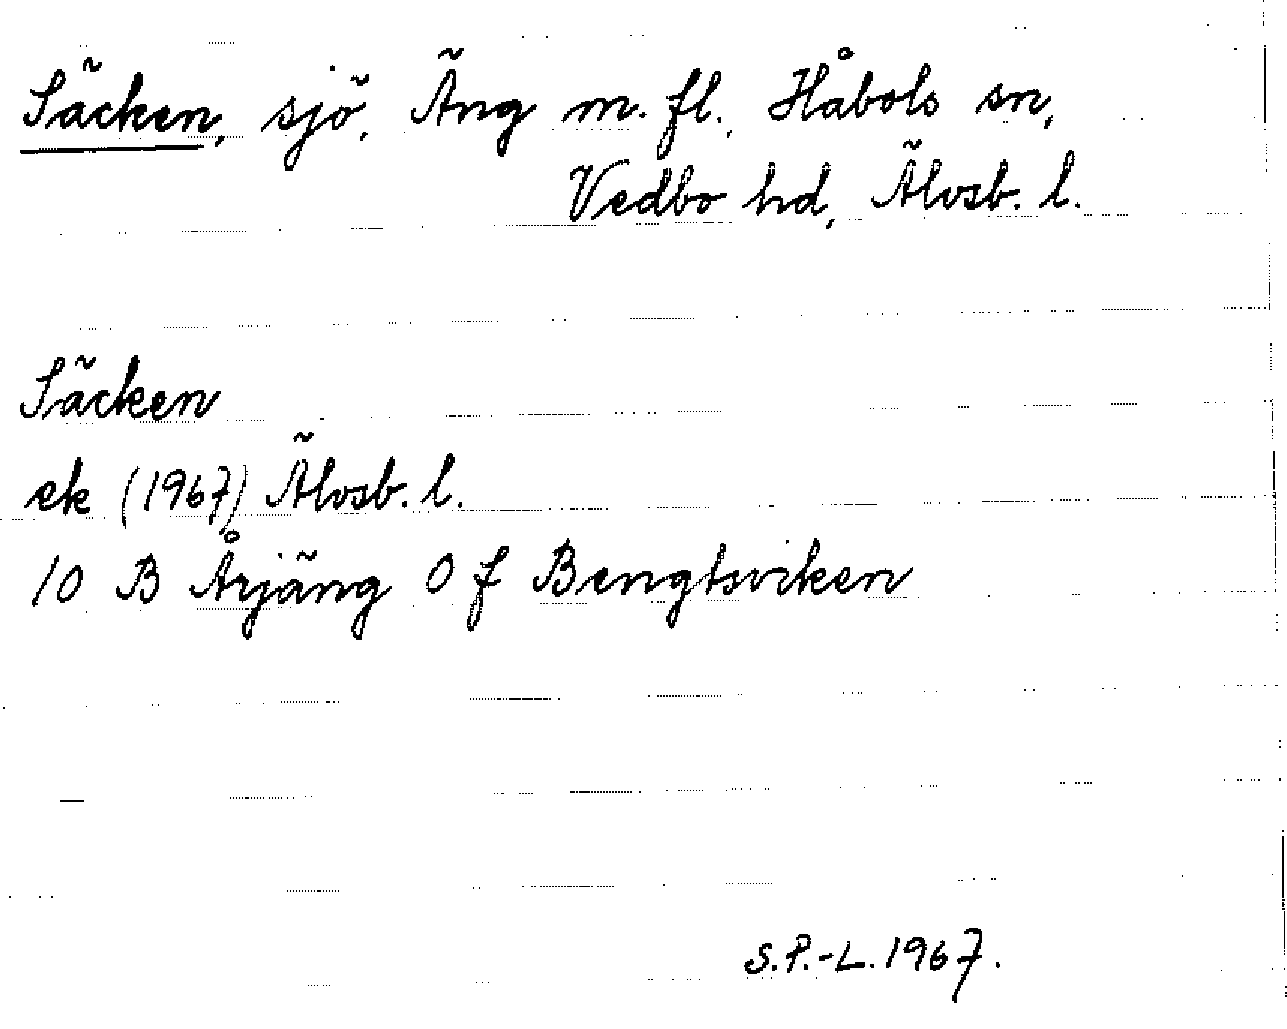 Säcken, sjö, Äng m. fl., Håbols sn,
Vedbo hd, Älvsb. l.
Säcken
ek (1967) Älvsb. l.
10 B Årjäng 0 f Bengtsviken
S.P.-L. 1967.